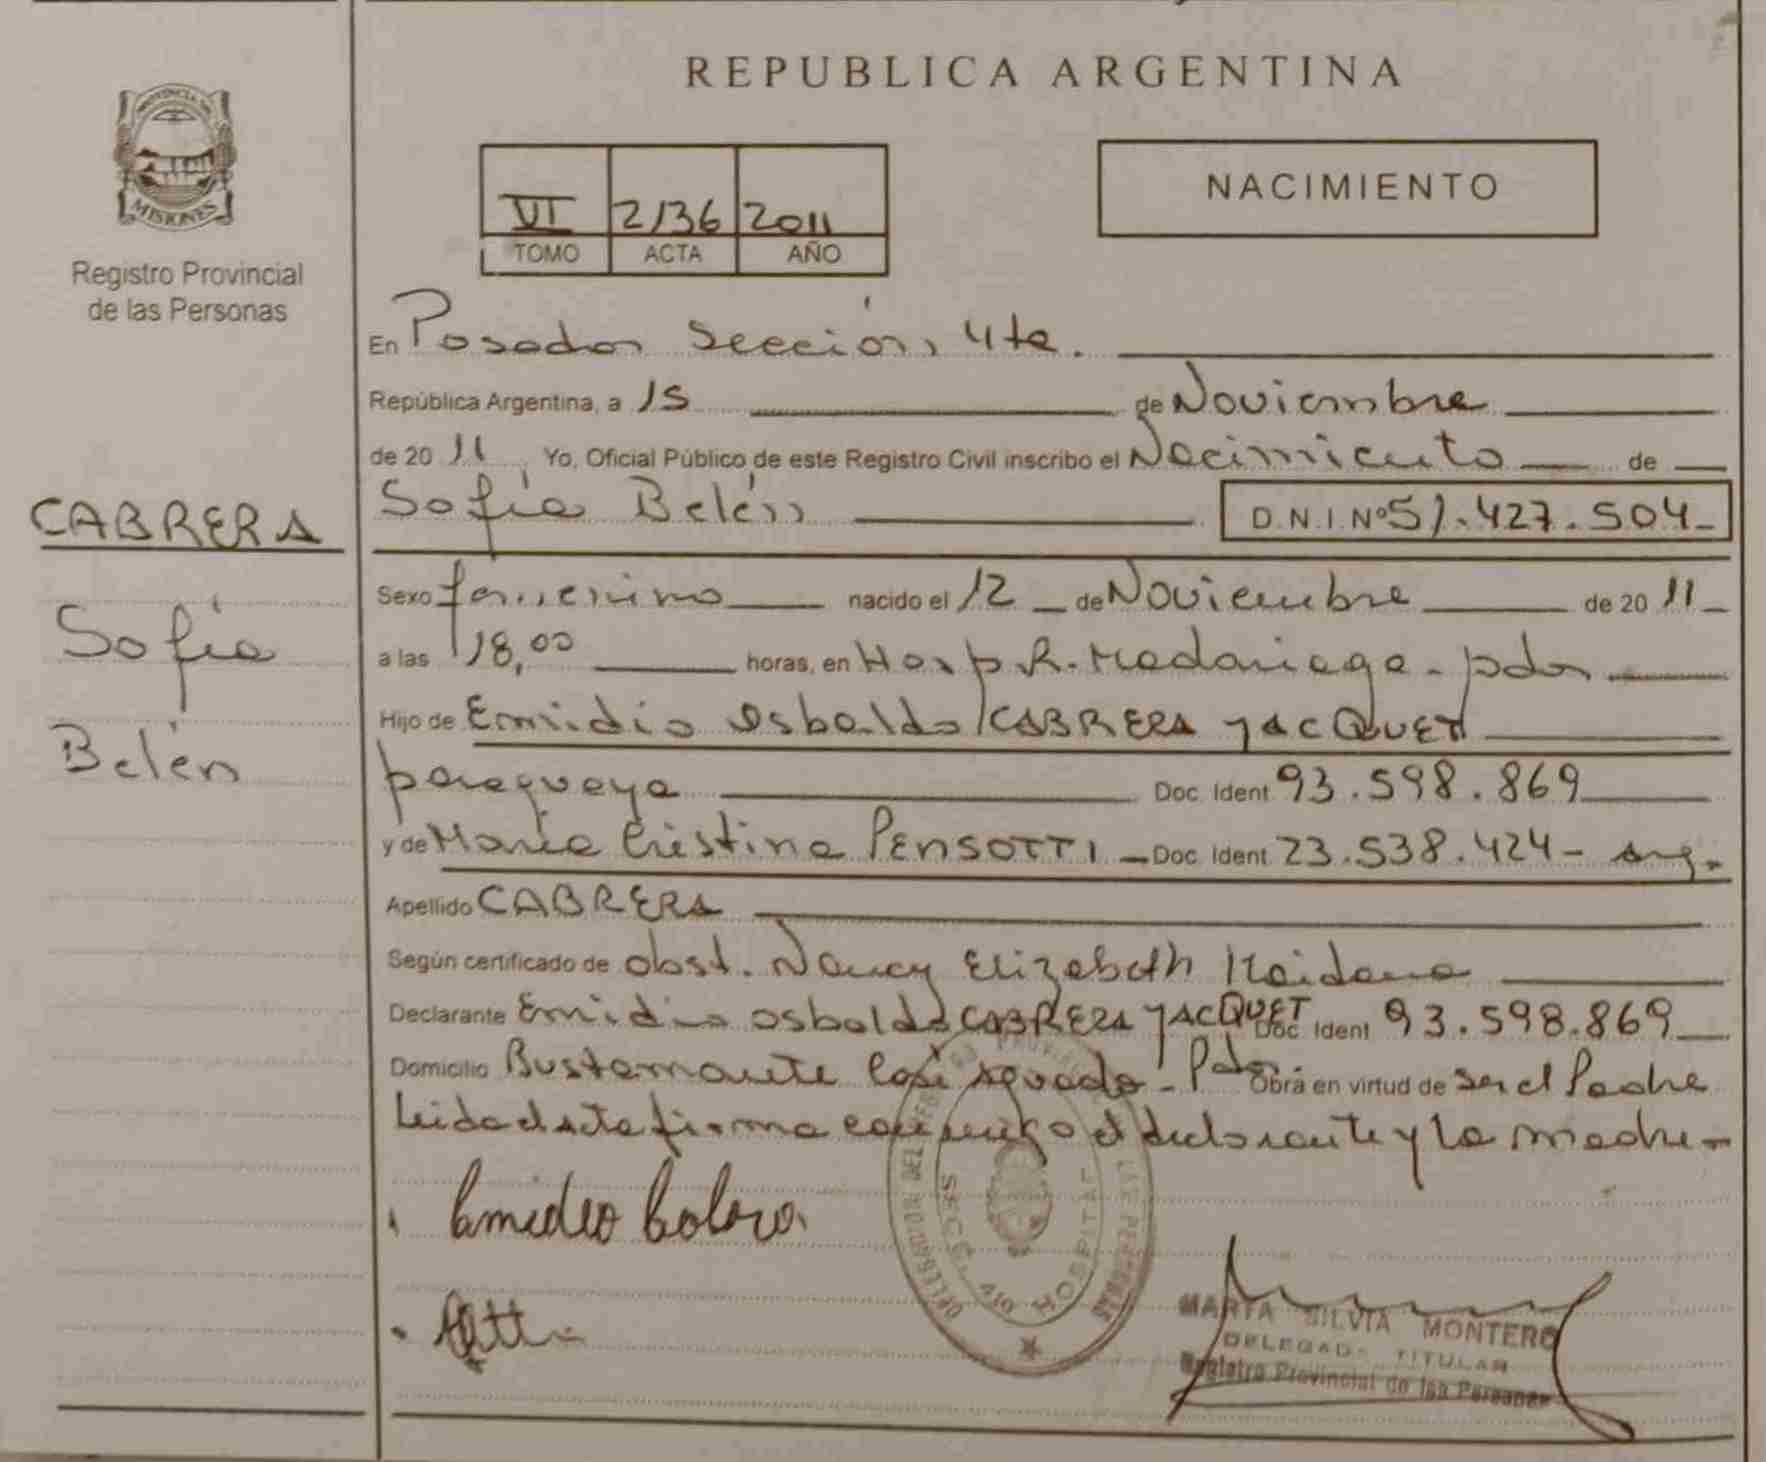 REPUBLICA ARGENTINA
PROVINCIA DE
MISIONES
Registro Provincial
de las Personas
NACIMIENTO
VI 2136 2011
TOMO ACTA AÑO
En Posadas Sección, 4ta.
República Argentina, a 15 de Noviembre
de 2011, Yo, Oficial Público de este Registro Civil inscribo el Nacimiento de
CABRERA
Sofía Belén D.N.I.Nº 51.427.504-
Sofía
Belén
Sexo femenino nacido el 12 de Noviembre de 2011
a las 18,00 horas, en Hosp. R. Madariaga - pdas
Hijo de Emidio Osbaldo CABRERA YACQUET
paraguaya Doc. Ident 93.598.869
y de María Cristina PENSOTTI - Doc. Ident 23.538.424 - arg.
Apellido CABRERA
Según certificado de obst. Nancy Elizabeth Maidana
Declarante Emidio Osbaldo CABRERA YACQUET Doc. Ident 93.598.869
Domicilio Bustamante casi Aguado - Pdas. Obra en virtud de ser el Padre
Leida el acta firma conmigo el declarante y la madre -
HOSPITAL
MARTA SILVIA MONTERO
DELEGADA TITULAR
Registro Provincial de las Personas